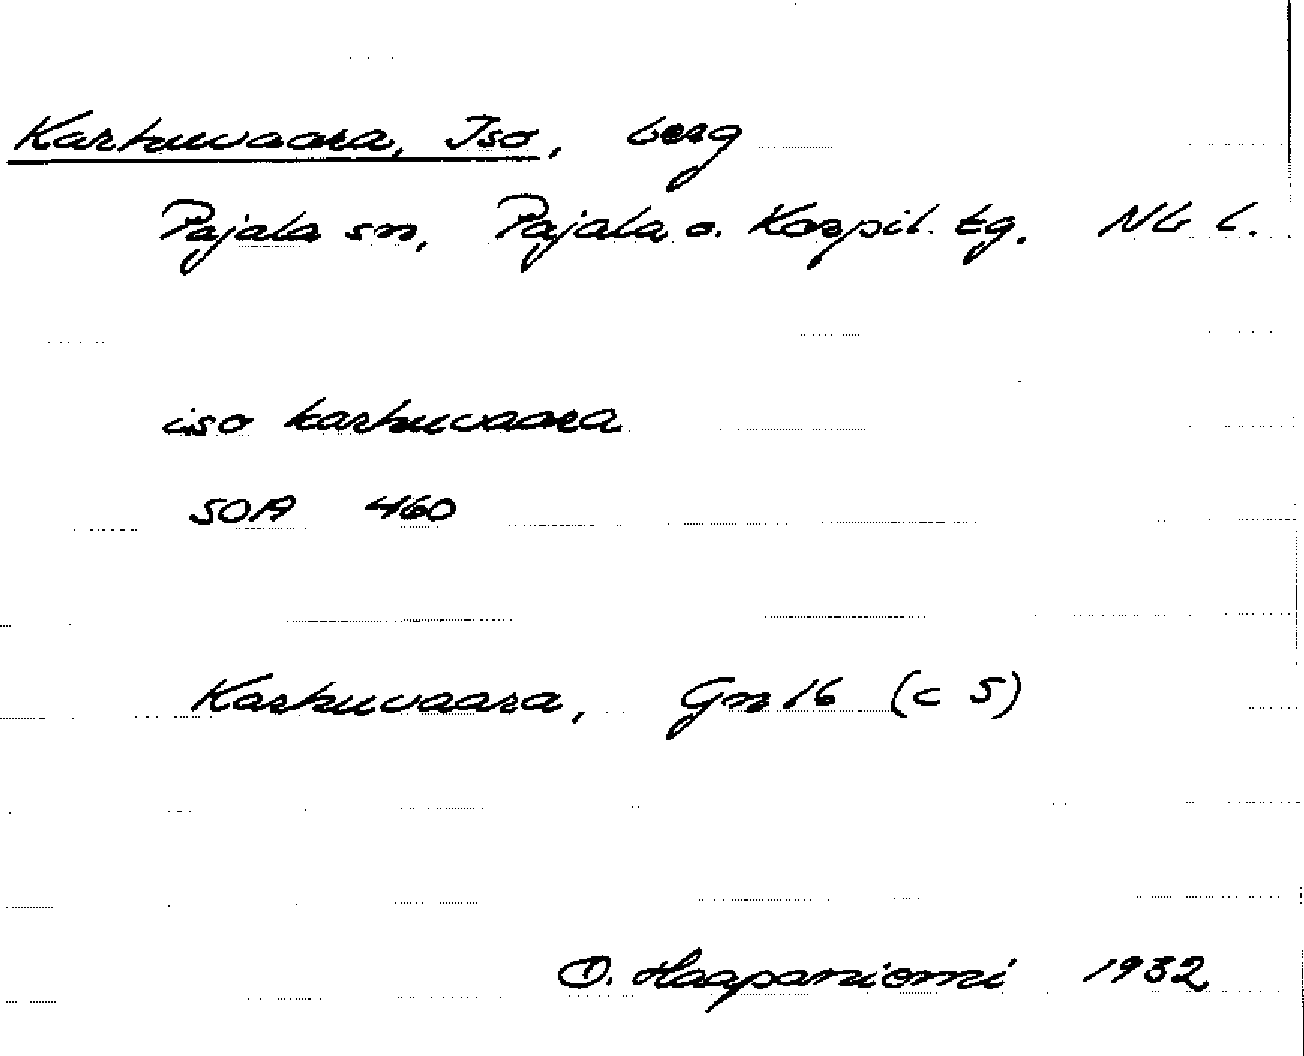 Karhuvaara, Iso, berg
Pajala sn, Pajala o. Korpil. tg. Nb l.
iso karhuvaara
SOA 460
Karhuvaara, Gn 16 (c 5)
O. Haapaniemi 1932